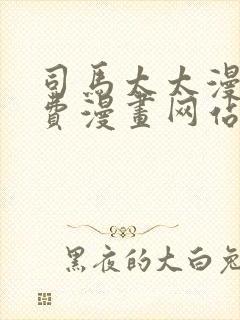 司马大大漫
费漫畫网佔
黑夜的大白兔